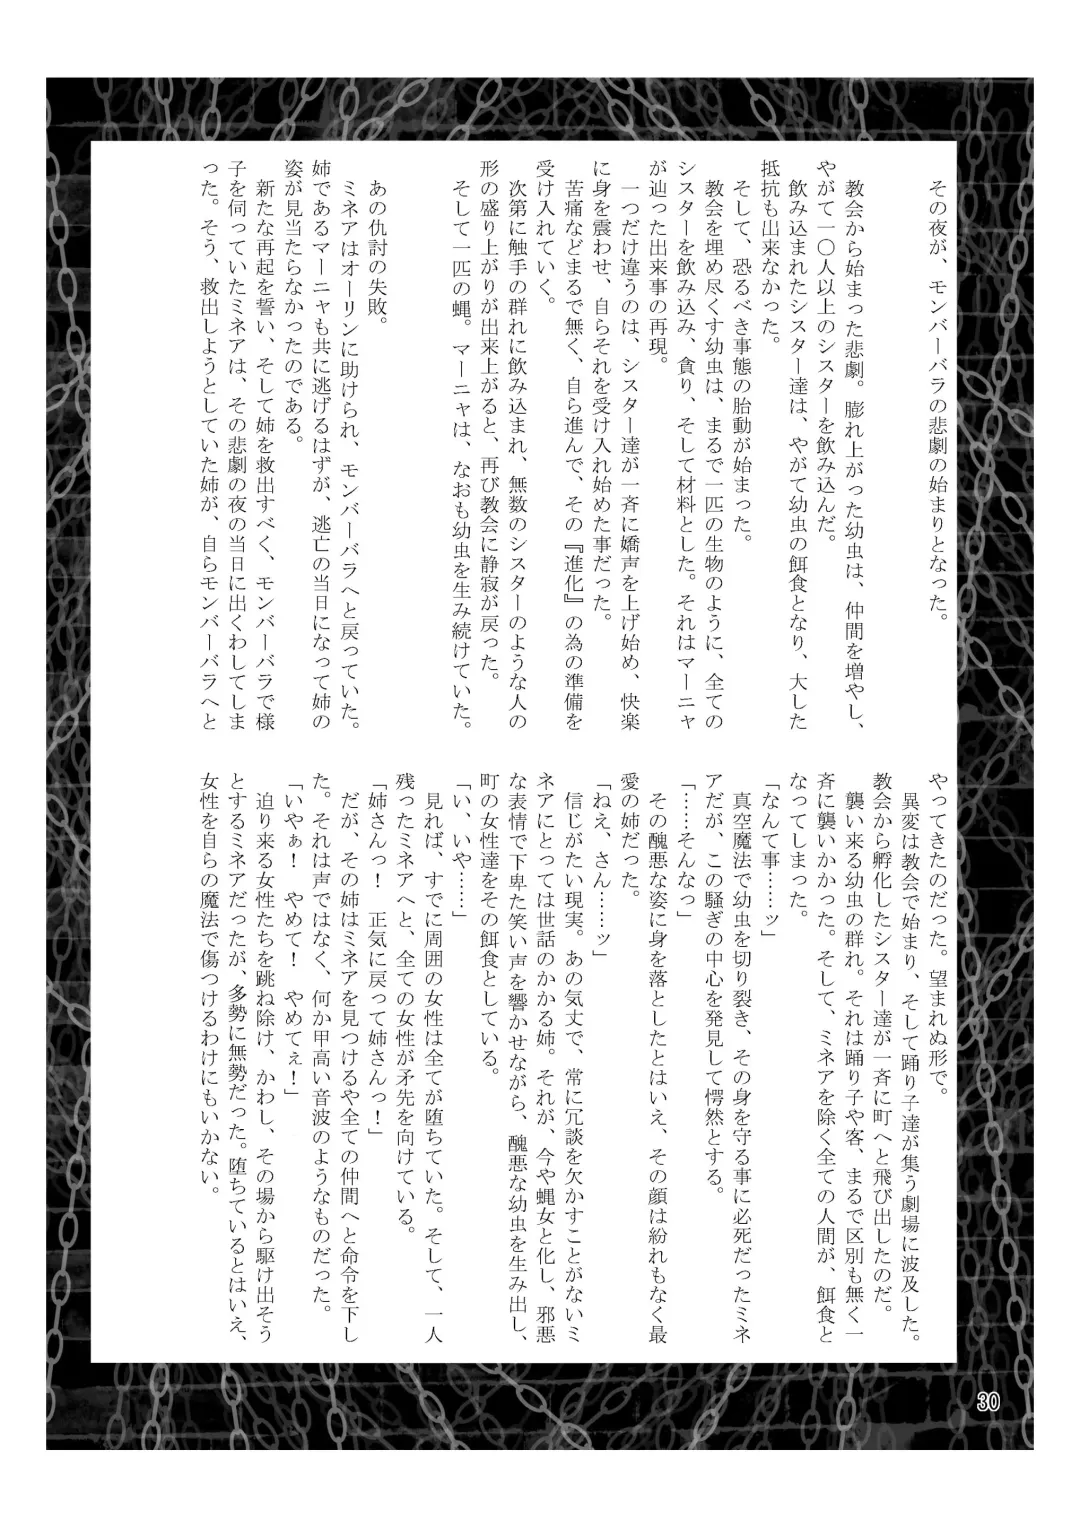 その夜が、モンバーバラの悲劇の始まりとなった。
教会から始まった悲劇。膨れ上がった幼虫は、仲間を増やし、
やがて一〇人以上のシスターを飲み込んだ。
飲み込まれたシスター達は、やがて幼虫の餌食となり、大した
抵抗も出来なかった。
そして、恐るべき事態の胎動が始まった。
教会を埋め尽くす幼虫は、まるで一匹の生物のように、全ての
シスターを飲み込み、貪り、そして材料とした。それはマーニャ
が辿った出来事の再現。
一つだけ違うのは、シスター達が一斉に嬌声を上げ始め、快楽
に身を震わせ、自らそれを受け入れ始めた事だった。
苦痛などまるで無く、自ら進んで、その『進化』の為の準備を
受け入れていく。
次第に触手の群れに飲み込まれ、無数のシスターのような人の
形の盛り上がりが出来上がると、再び教会に静寂が戻った。
そして一匹の蝿。マーニャは、なおも幼虫を生み続けていた。
あの仇討の失敗。
ミネアはオーリンに助けられ、モンバーバラへと戻っていた。
姉であるマーニャも共に逃げるはずが、逃亡の当日になって姉の
姿が見当たらなかったのである。
新たな再起を誓い、そして姉を救出すべく、モンバーバラで様
子を伺っていたミネアは、その悲劇の夜の当日に出くわしてしま
った。そう、救出しようとしていた姉が、自らモンバーバラへと
やってきたのだった。望まれぬ形で。
異変は教会で始まり、そして踊り子達が集う劇場に波及した。
教会から孵化したシスター達が一斉に町へと飛び出したのだ。
襲い来る幼虫の群れ。それは踊り子や客、まるで区別も無く一
斉に襲いかかった。そして、ミネアを除く全ての人間が、餌食と
なってしまった。
「なんて事……ッ」
真空魔法で幼虫を切り裂き、その身を守る事に必死だったミネ
アだが、この騒ぎの中心を発見して愕然とする。
「……そんなっ」
その醜悪な姿に身を落としたとはいえ、その顔は紛れもなく最
愛の姉だった。
「ねえ、さん……ッ」
信じがたい現実。あの気丈で、常に冗談を欠かすことがないミ
ネアにとっては世話のかかる姉。それが、今や蝿女と化し、邪悪
な表情で下卑た笑い声を響かせながら、醜悪な幼虫を生み出し、
町の女性達をその餌食としている。
「い、いや……」
見れば、すでに周囲の女性は全てが堕ちていた。そして、一人
残ったミネアへと、全ての女性が矛先を向けている。
「姉さんっ！　正気に戻って姉さんっ！」
だが、その姉はミネアを見つけるや全ての仲間へと命令を下し
た。それは声ではなく、何か甲高い音波のようなものだった。
「いやぁ！　やめて！　やめてぇ！」
迫り来る女性たちを跳ね除け、かわし、その場から駆け出そう
とするミネアだったが、多勢に無勢だった。堕ちているとはいえ、
女性を自らの魔法で傷つけるわけにもいかない。
30